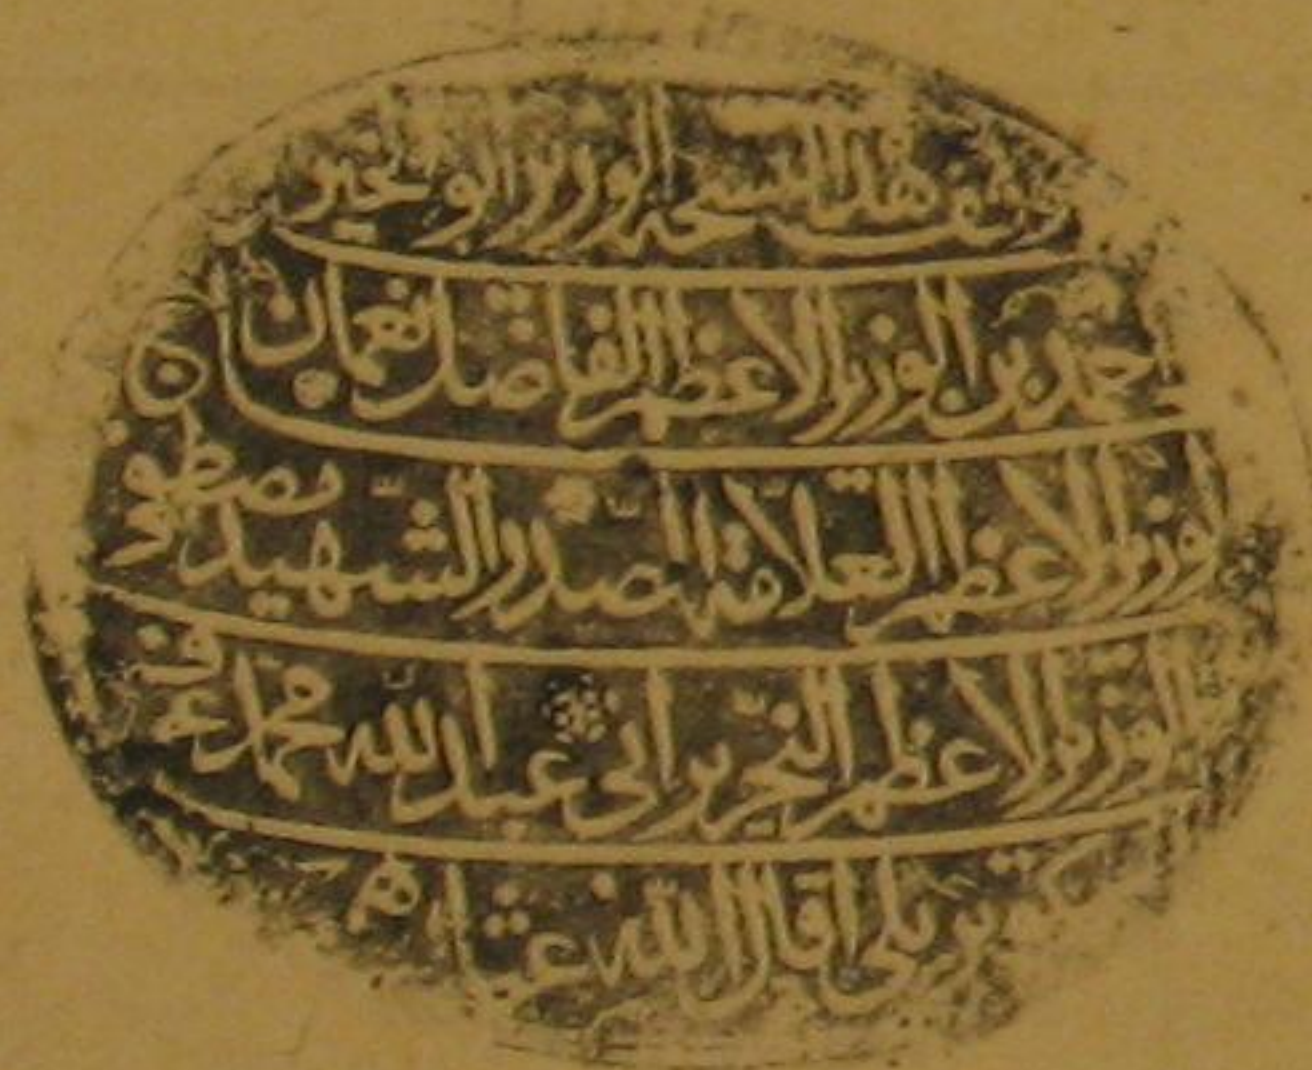 وقف هذا النسخه الوزير ابو الخير
احمد بن الوزير الاعظم الفاضل نعمان بن
الوزير الاعظم العلامه الصدر الشهيد مصطفى
الوزير الاعظم النحرير ابى عبد الله محمد عرف
كوبريلى اقال الله عثارهم